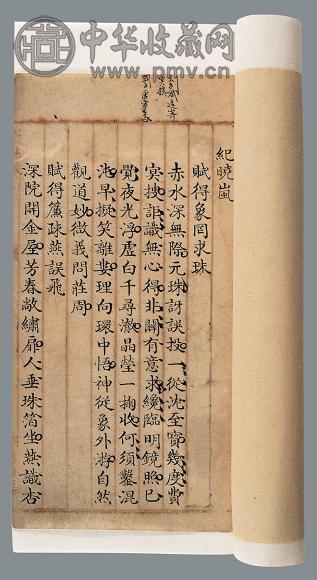 中华收藏网
www.pmv.cn
紀曉嵐
賦得象罔求珠
赤水深無際元珠訝誤投一從沈至寶幾度費
冥搜詎識無心得非關有意求纔臨明鏡照已
覺夜光浮虛白千尋澈晶瑩一掬收何須鑿混
沌早擬笑離婁理向環中悟神從象外游自然
觀道妙微義問莊周
賦得簾疎燕誤飛
深院開金屋芳春敞繡扉人垂珠箔坐燕識杏